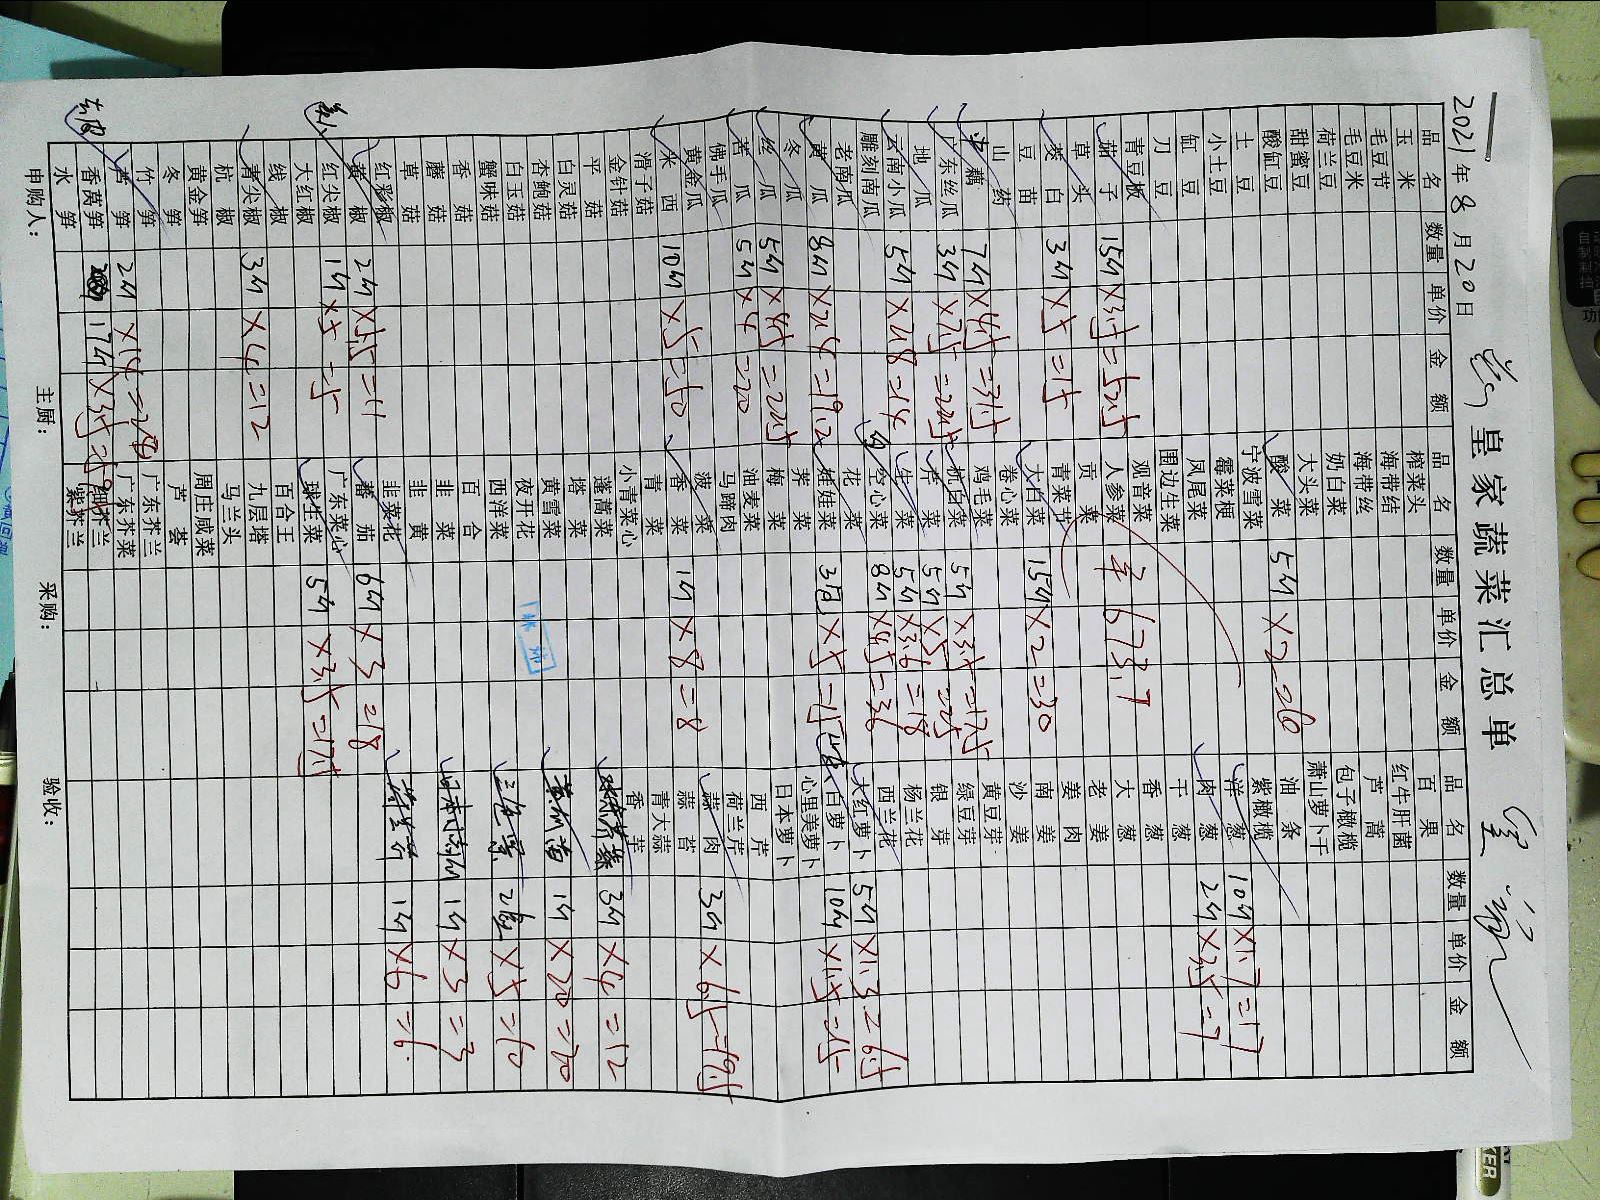 皇家蔬菜汇总单
2021年8月20日
品名 数量 单价 金额 品名 数量 单价 金额 品名 数量 单价 金额
玉米 榨菜头 百果
毛豆节 海带结 红牛肝菌
毛豆米 海带丝 芦蒿
荷兰豆 奶白菜 包子橄榄
甜蜜豆 大头菜 萧山萝卜干
酸缸豆 酸菜 5斤 ×2 油条
土豆 宁波雪菜 紫橄榄
小土豆 霉菜梗 洋葱 10斤 ×1.7 =17
缸豆 凤尾菜 肉葱 2斤 ×3.5 =7
刀豆 围边生菜 干葱
青豆板 观音菜 香葱
茄子 15斤 ×3.5 =52.5 人参菜 673.7 大葱
草头 贡菜 老姜
茭白 3斤 ×5 =15 青菜节 姜肉
豆苗 大白菜 15斤 ×2 =30 南姜
山药 卷心菜 沙姜
藕 7斤 ×4.5 =31.5 鸡毛菜 黄豆芽
广东丝瓜 3斤 ×7.5 =22.5 杭白菜 5斤 ×3.5 =17.5 绿豆芽
地瓜 芹菜 5斤 ×5 =25 银芽
云南小瓜 5斤 ×2.8 =14 生菜 5斤 ×3.6 =18 杨兰花
雕刻南瓜 空心菜 8斤 ×4.5 =36 西兰花
老南瓜 花菜 大红萝卜 5斤 ×1.3 6.5
黄瓜 8斤 ×2.4 =19.2 娃娃菜 3包 ×5 =15 白萝卜 10斤 ×1.5 =15
冬瓜 荠菜 心里美萝卜
丝瓜 5斤 ×4.5 =22.5 梅菜 日本萝卜
苦瓜 5斤 ×4 =20 油麦菜 西芹
佛手瓜 马蹄肉 荷兰芹
黄金瓜 菠菜 蒜肉 3斤 ×6.5 =19.5
米西 10斤 ×5 =50 香菜 1斤 ×8 =8 蒜苔
滑子菇 青菜 青大蒜
金针菇 小青菜心 香芋
平菇 蓬蒿菜 3斤 ×4 =12
白灵菇 塔菜
杏鲍菇 黄雪菜 黄瓜苗 1斤
白玉菇 夜开花
蟹味菇 西洋菜 三色堇 2盒 ×5 =10
香菇 百合
蘑菇 韭菜 日本小南瓜 1斤 ×3 =3
草菇 韭黄
红彩椒 韭菜花 1斤 ×6 =6
黄椒 2斤 ×5.5 =11 番茄 6斤 ×3 =18
红尖椒 1斤 ×5 =5 广东菜心
大红椒 球生菜 5斤 ×3.5 =17.5
线椒 百合王
青尖椒 3斤 ×4 =12 九层塔
杭椒 马兰头
黄金笋 周庄咸菜
冬笋 芦荟
竹笋 广东芥兰
芦笋 2斤 ×14 =28 广东芥菜
香莴笋 17斤 ×3.5 细芥兰
水笋 紫芥兰
申购人： 主厨： 采购： 验收：